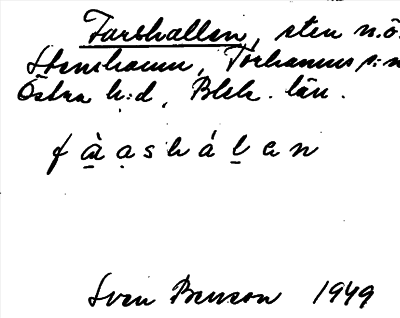 Farshallen, sten n.ö.
Stenshamn, Torhamns s:n
Östra h:d, Blek. län.
f à̱ ạ s h á ḻ e n
Sven Benson 1949